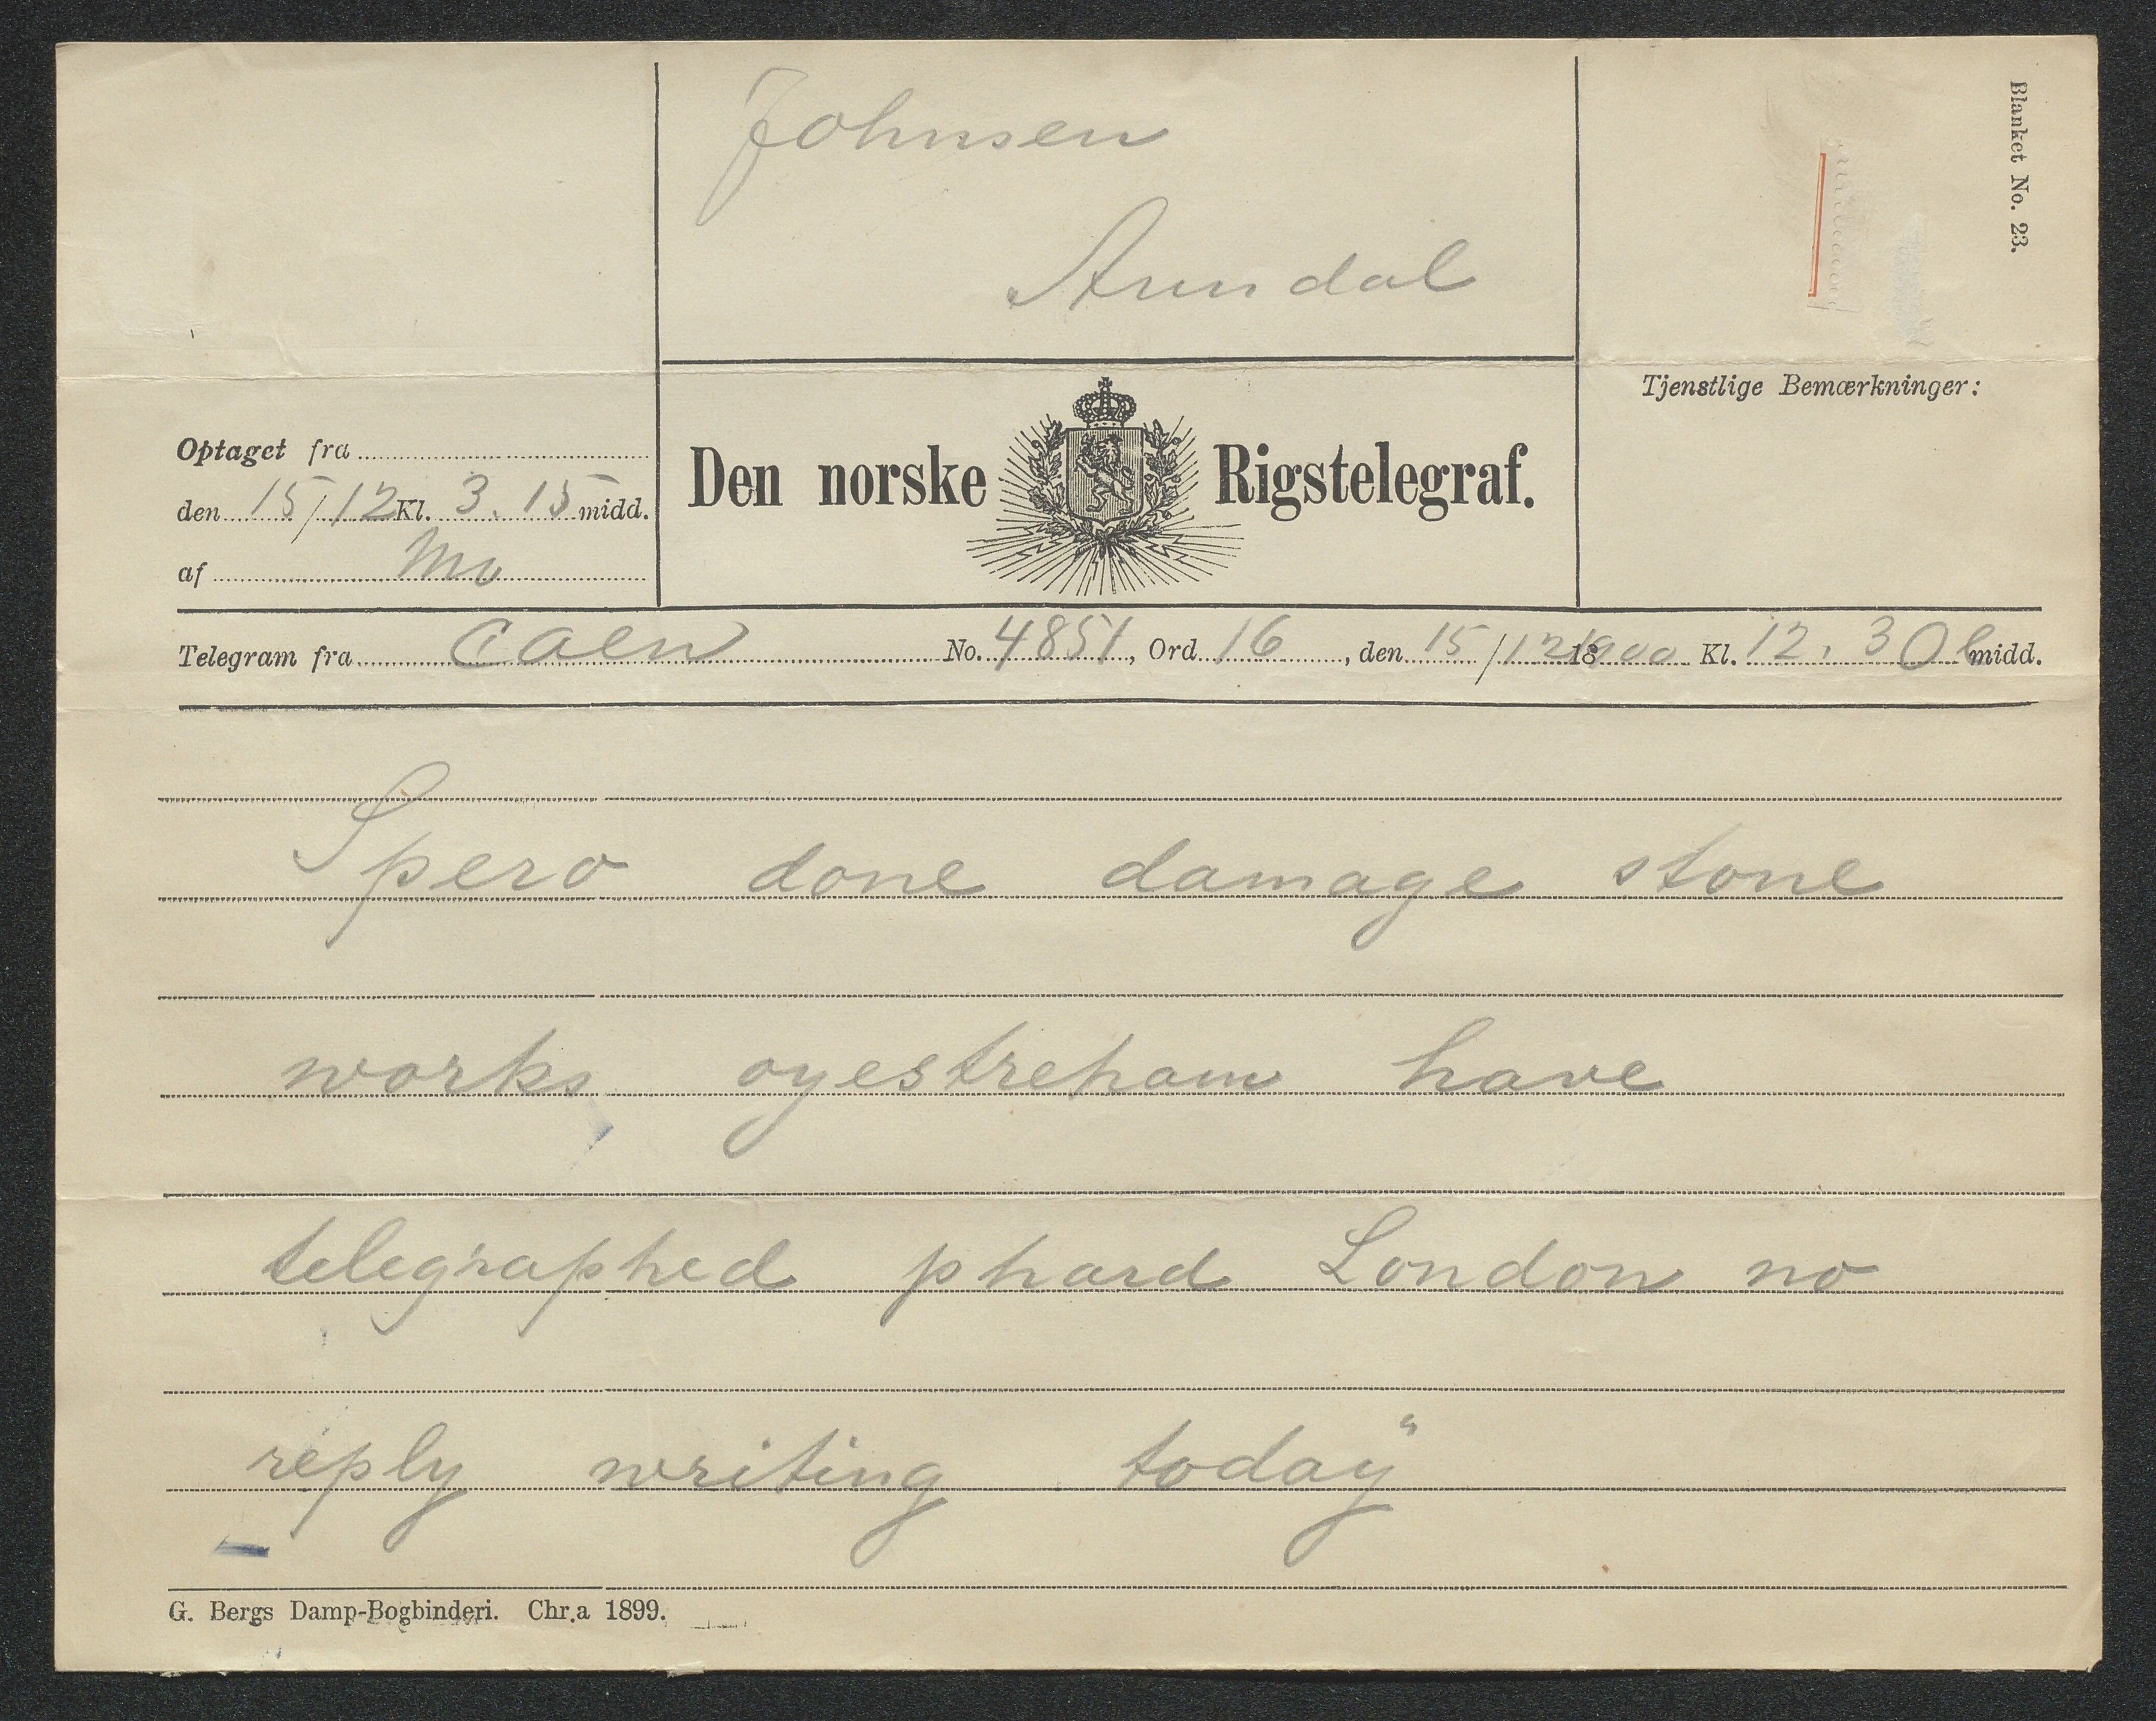 Johnsen
Arendal
Blanket No. 23.
Tjenstlige Bemærkninger:
Optaget fra
den 15/12 Kl. 3.15 midd.
af Mo
Den norske Rigstelegraf.
Telegram fra Caen No. 4851, Ord 16, den 15/12 1900 Kl. 12.30 midd.
Spero done damage stone
works oyestreham have
telegraphed phard London no
reply writing today"
G. Bergs Damp-Bogbinderi. Chr.a 1899.